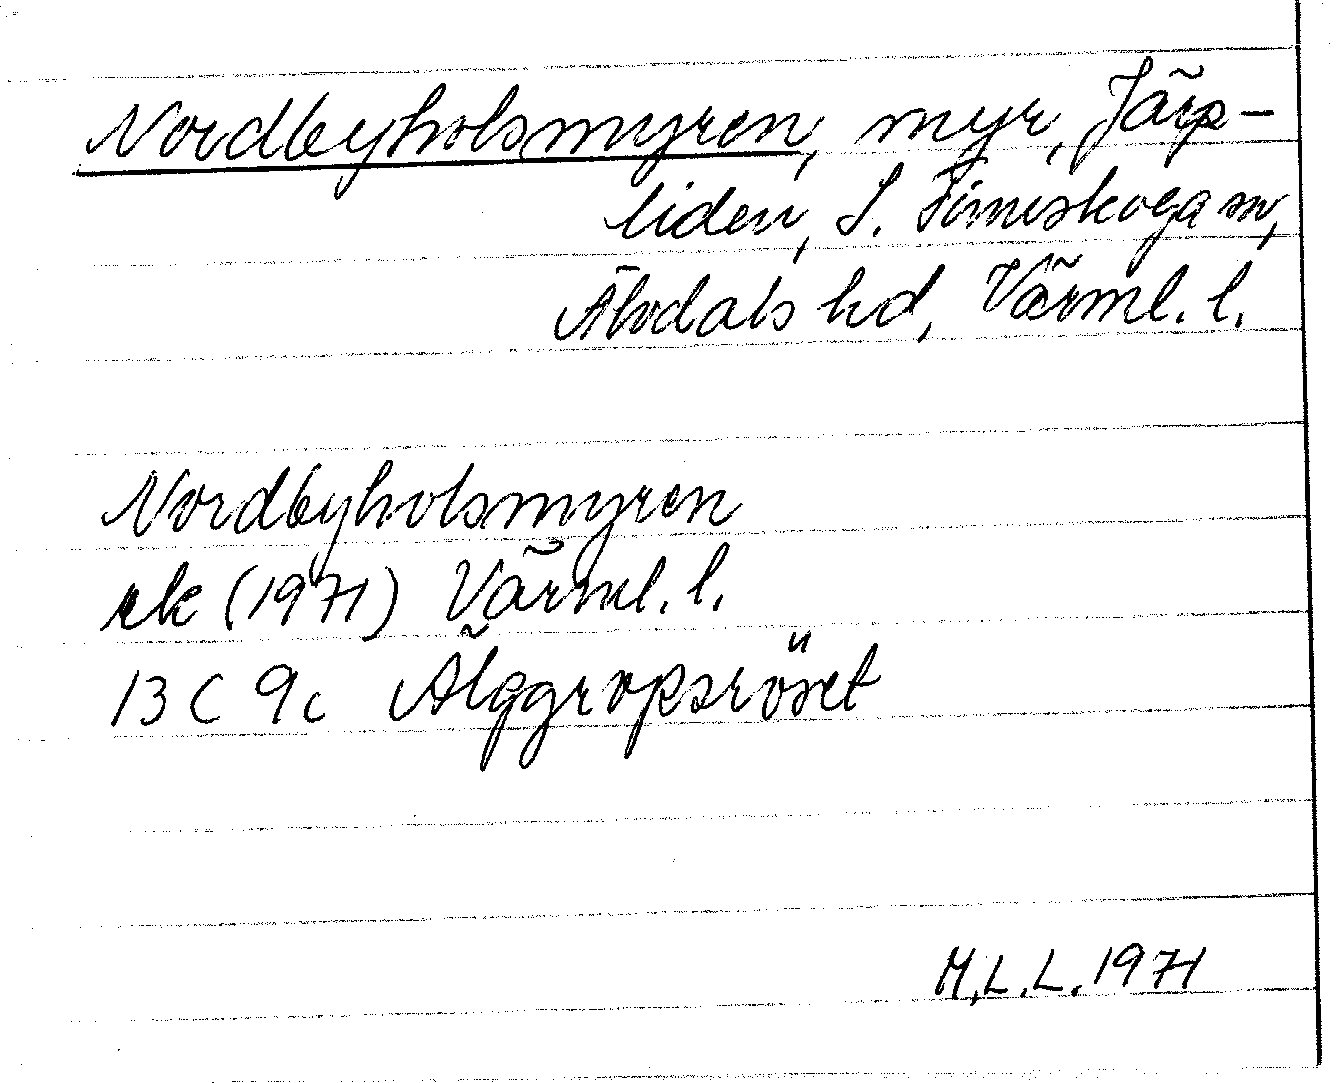 Nordbyholsmyren, myr, Järp-
liden, S. Finnskoga sn,
Älvdals hd, Värml. l.
Nordbyholsmyren
ek (1971) Värml. l.
13 C 9c Älggropsröset
M.L.L. 1971